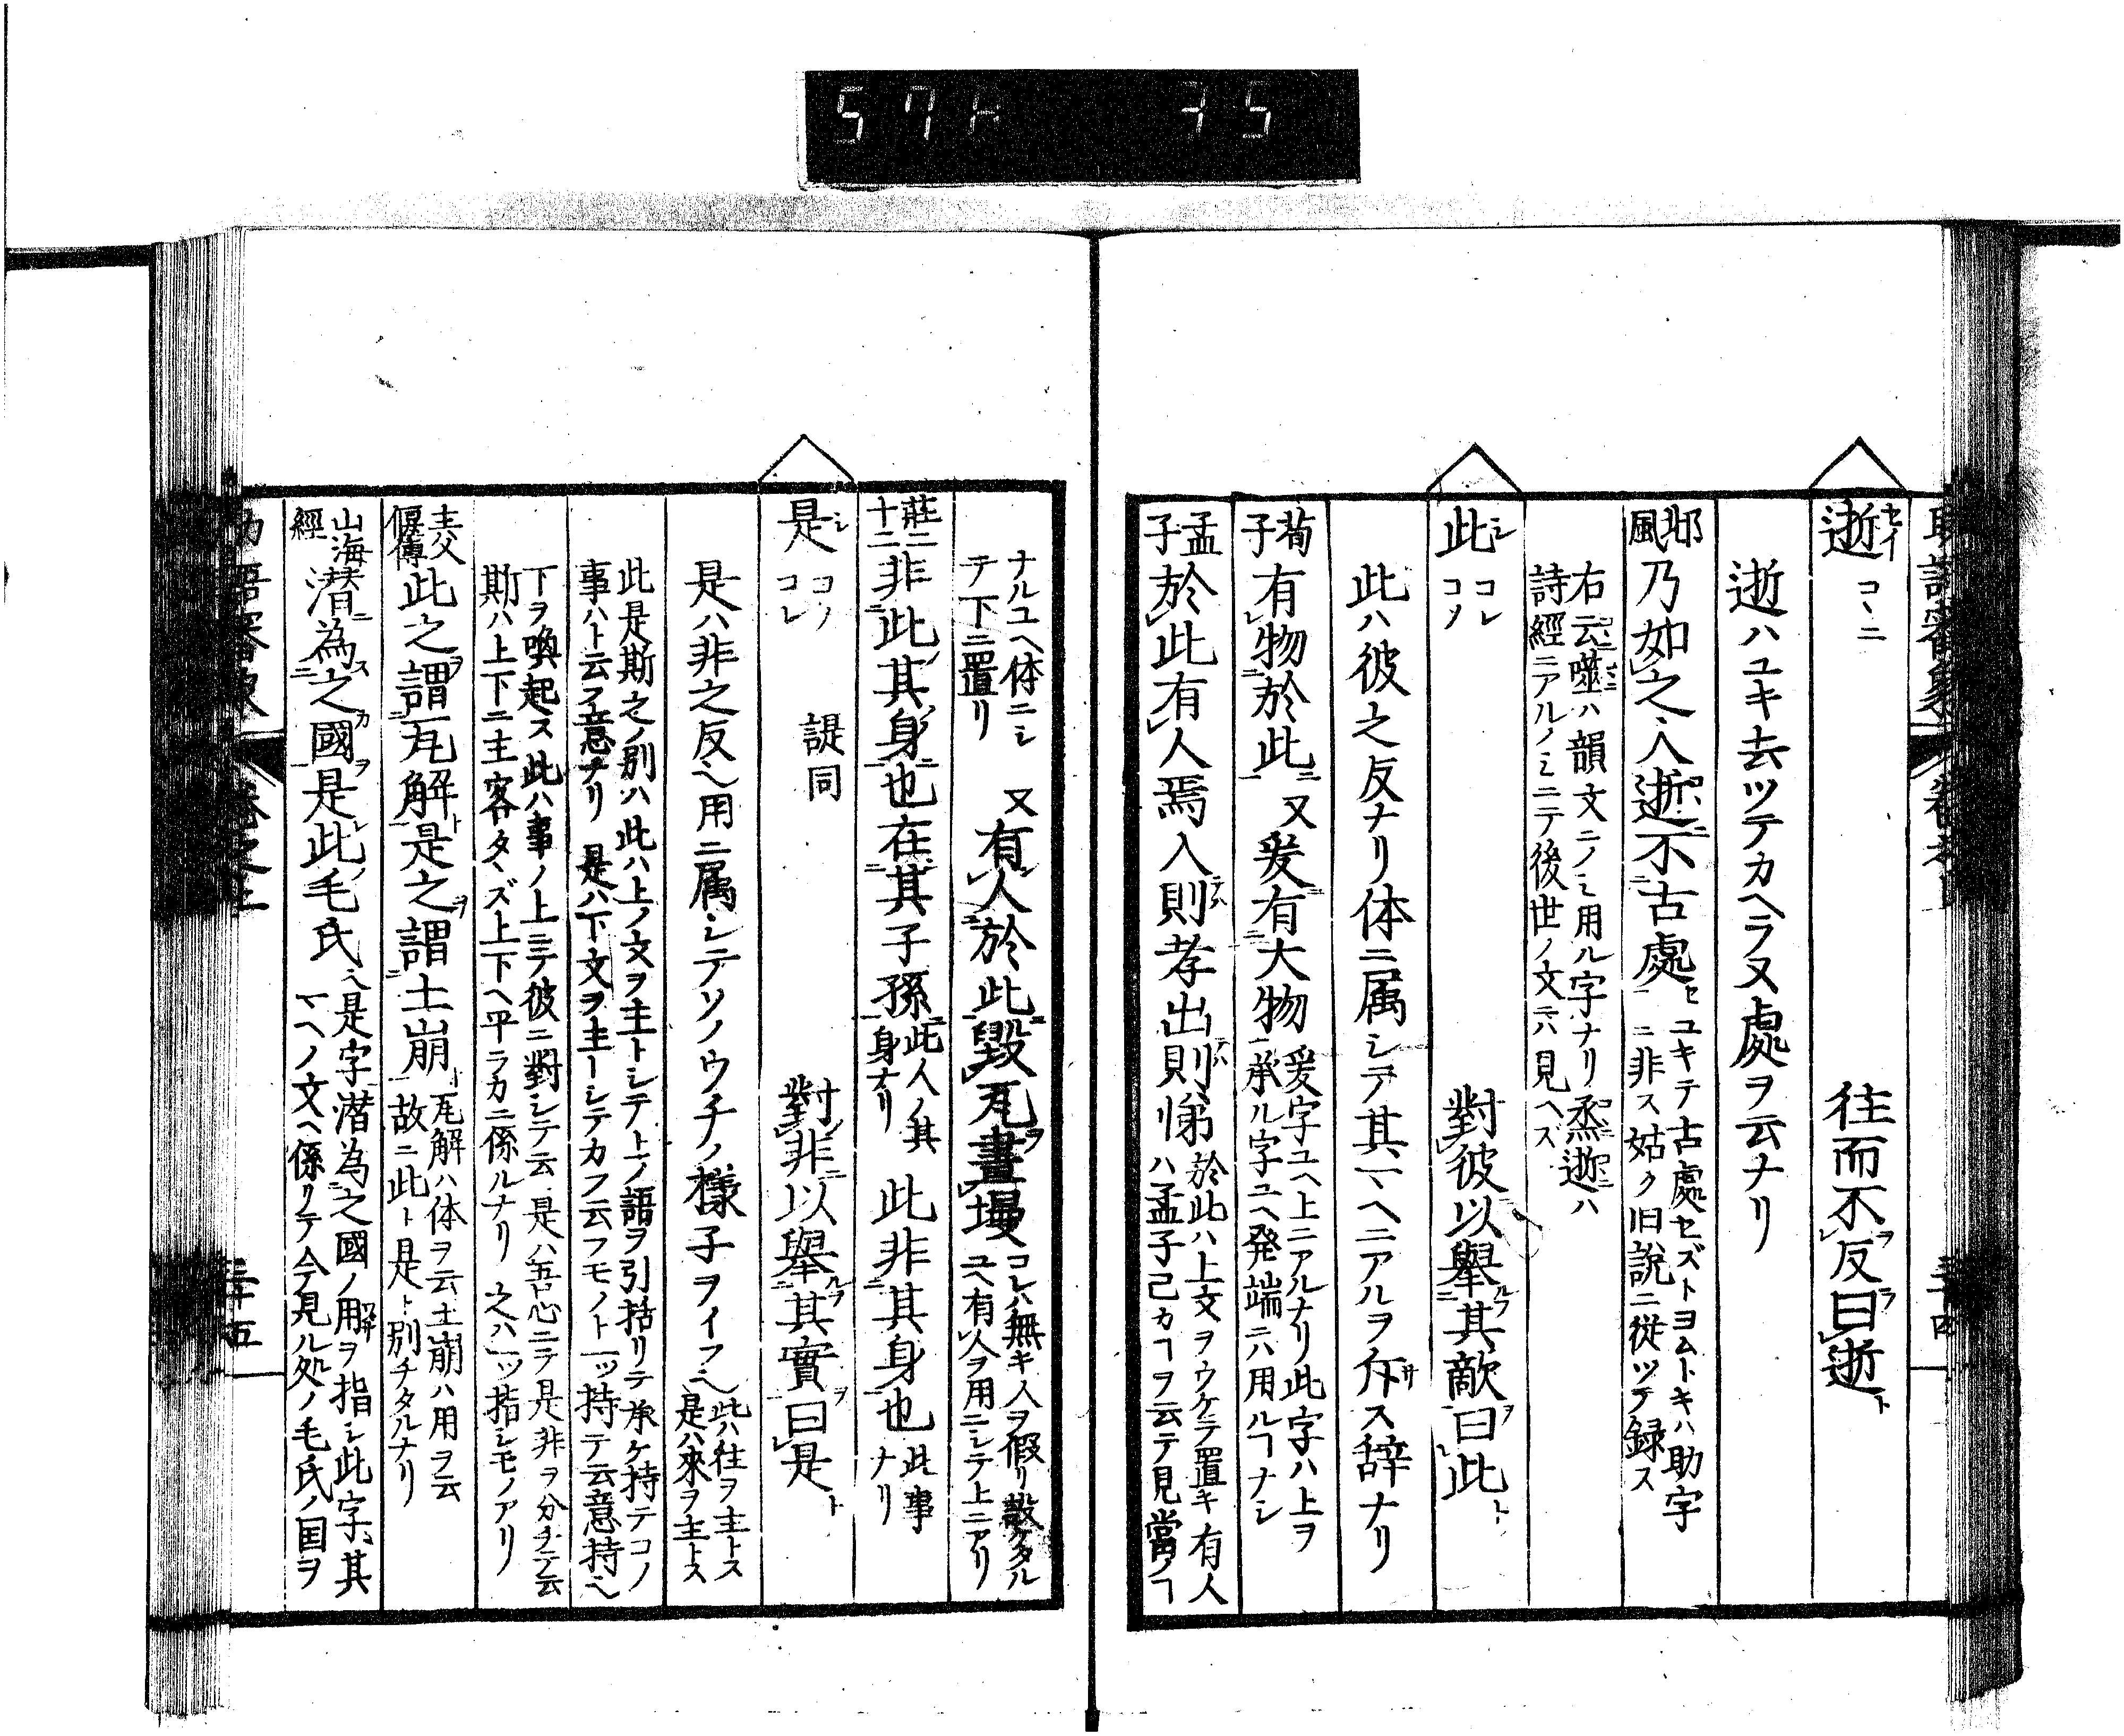 逝 セイ コヽニ 往而不反曰逝
逝ハユキ去ツテカヘラヌ處ヲ云ナリ
邶風 乃如之人逝不古處 ユキテ古處セズトヨムトキハ助字
ニ非ス姑ク旧説ニ從ツテ録ス
右云噬ハ韻文ニノミ用ル字ナリ烝逝ハ
詩經ニアルノミニテ後世ノ文ニハ見ヘズ
此 シ コレ コノ 對彼以舉其敵曰此
此ハ彼之反ナリ体ニ属シテ其マヽヘニアルヲ斥ス辞ナリ
荀子 有物於此 又 爰有大物 爰字ユヘ上ニアルナリ此字ハ上ヲ
承ル字ユヘ発端ニハ用ルヿナシ
孟子 於此有人焉入則孝出則悌 於此ハ上文ヲウケテ置キ有人
ハ孟子己カヿヲ云テ見當ノヿ
ナルユヘ体ニシ
テ下ニ置リ 又 有人於此毀瓦畫墁 コレハ無キ人ヲ假リ設ケタル
ユヘ有人ヲ用ニシテ上ニアリ
莊二十二 非此其身也在其子孫 此人ノ其
身ナリ 此非其身也 此事
ナリ
是 シ コノ コレ 諟同 對非以舉其實曰是
是ハ非之反ヘ用ニ属シテソノウチノ樣子ヲイフ 此ハ往ヲ主トス
是ハ來ヲ主トス
此是斯之ノ別ハ此ハ上ノ文ヲ主トシテトノ語ヲ引括リテ承ケ持テコノ
事ハト云フ意ナリ 是ハ下文ヲ主ーシテカフ云フモノト一ッ持テ云意持
下ヲ喚起ス此ハ事ノ上ニテ彼ニ對シテ云是ハ吾心ニテ是非ヲ分チテ云
斯ハ上下ニ主客タヽズ上下ヘ平ラカニ係ルナリ 之ハ一ッ指シモノアリ
主父偃傳 此之謂瓦解是之謂土崩 瓦解ハ体ヲ云土崩ハ用ヲ云
故ニ此ト是ト別チタルナリ
山海經 潜為之國是此毛氏 是字潜為之國ノ用ヲ指シ此字其
マヘノ文ヘ係リテ今見ル処ノ毛氏ノ国ヲ
卷之上
三十五